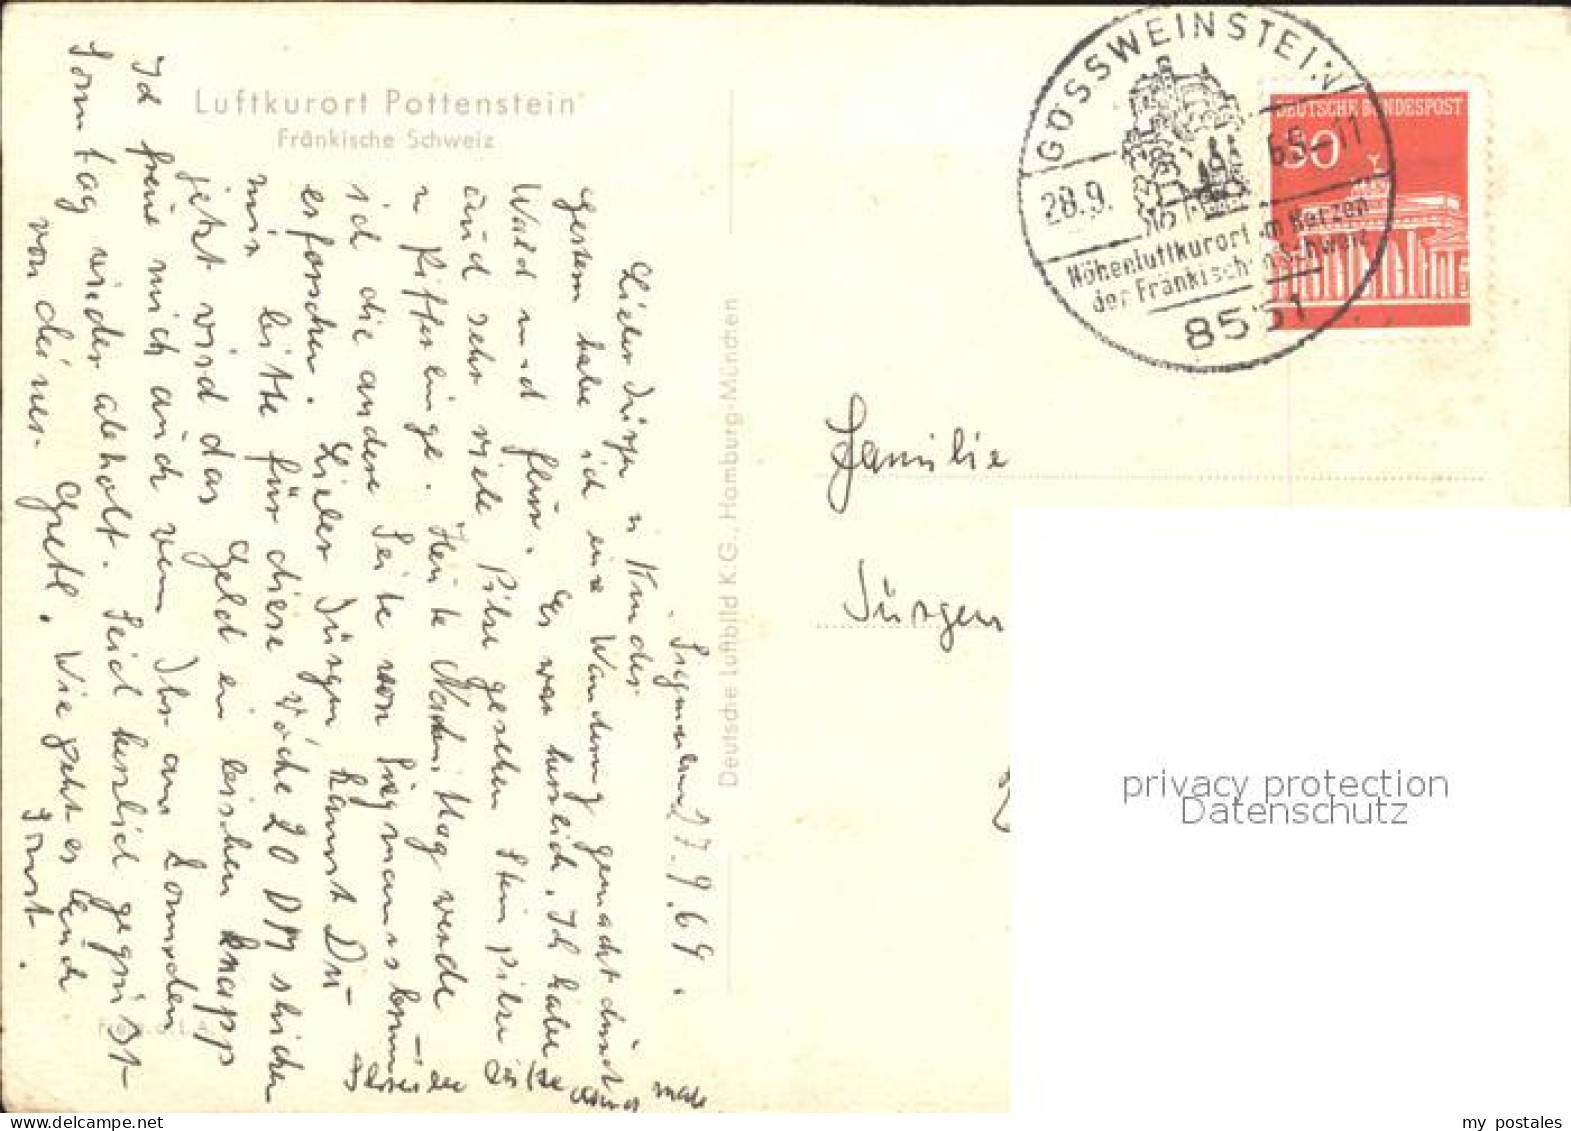 Luftkurort Pottenstein
Fränkische Schweiz
GOSSWEINSTEIN
28.9. 69-11
Höhenluftkurort im Herzen
der Fränkischen Schweiz
8551
DEUTSCHE BUNDESPOST
30
Deutsche Luftbild K.G., Hamburg-München
27.9.69.
Lieber Jürgen u Kinder
Gestern habe ich eine Wanderung gemacht durch
Wald und Flur. Es war herrlich. Ich habe
auch sehr viele Pilze gesehen Steinpilze
u Pfifferlinge. Heute Nachmittag werde
ich die andere Seite von Siegmannsbrunn
erforschen. Lieber Jürgen kannst Du
mir bitte für diese Woche 20 DM schicken
jetzt wird das Geld ein bischen knapp
Ich freue mich auch wenn Ihr am kommenden
Sonntag wieder abholt. Seid herzlich gegrüßt
von deiner Gretl. Wie geht es Euch
sonst.
Familie
Jürgen
privacy protection
Datenschutz
my postales